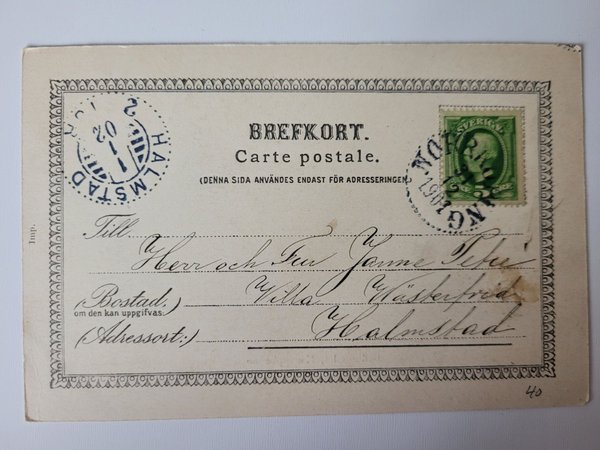 BREFKORT.
Carte postale.
(DENNA SIDA ANVÄNDES ENDAST FÖR ADRESSERINGEN
HALMSTAD
1 1 02
SVERIGE
1901
Imp.
Till Herr och Fru Janne
(Bostad,) Villa
om den kan uppgifvas.
(Adressort:) Halmstad
40